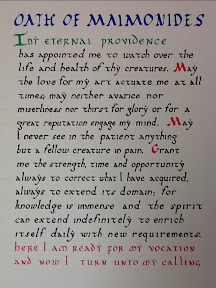 OATH OF MAIMONIDES
The eternal providence
has appointed me to watch over the
life and health of thy creatures. May
the love for my art actuate me at all
times; may neither avarice nor
miserliness nor thirst for glory or for a
great reputation engage my mind. May
I never see in the patient anything
but a fellow creature in pain. Grant
me the strength, time and opportunity
always to correct what I have acquired,
always to extend its domain; for
knowledge is immense and the spirit
can extend indefinitely to enrich
itself daily with new requirements.
here I am ready for my vocation
and now I turn unto my calling